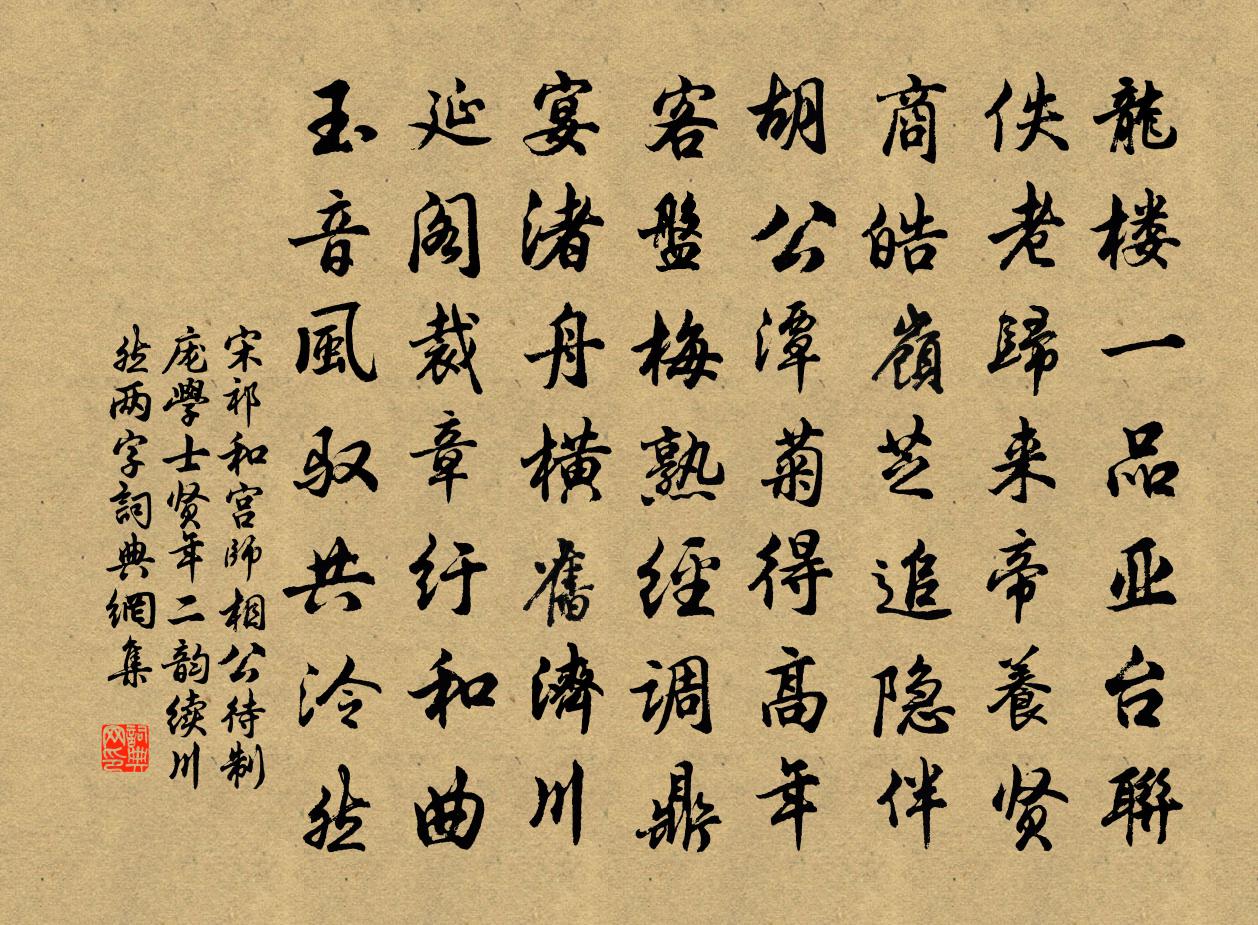 龍楼一品亚台聯
佚老歸来帝養贤
商皓嶺芝追隐伴
胡公潭菊得高年
客盤梅熟經调鼎
宴渚舟横舊濟川
延阁裁章纡和曲
玉音風驭共泠然
宋祁和宫师相公待制
庞學士贤年二韵续川
然两字詞典網集
詞典网印